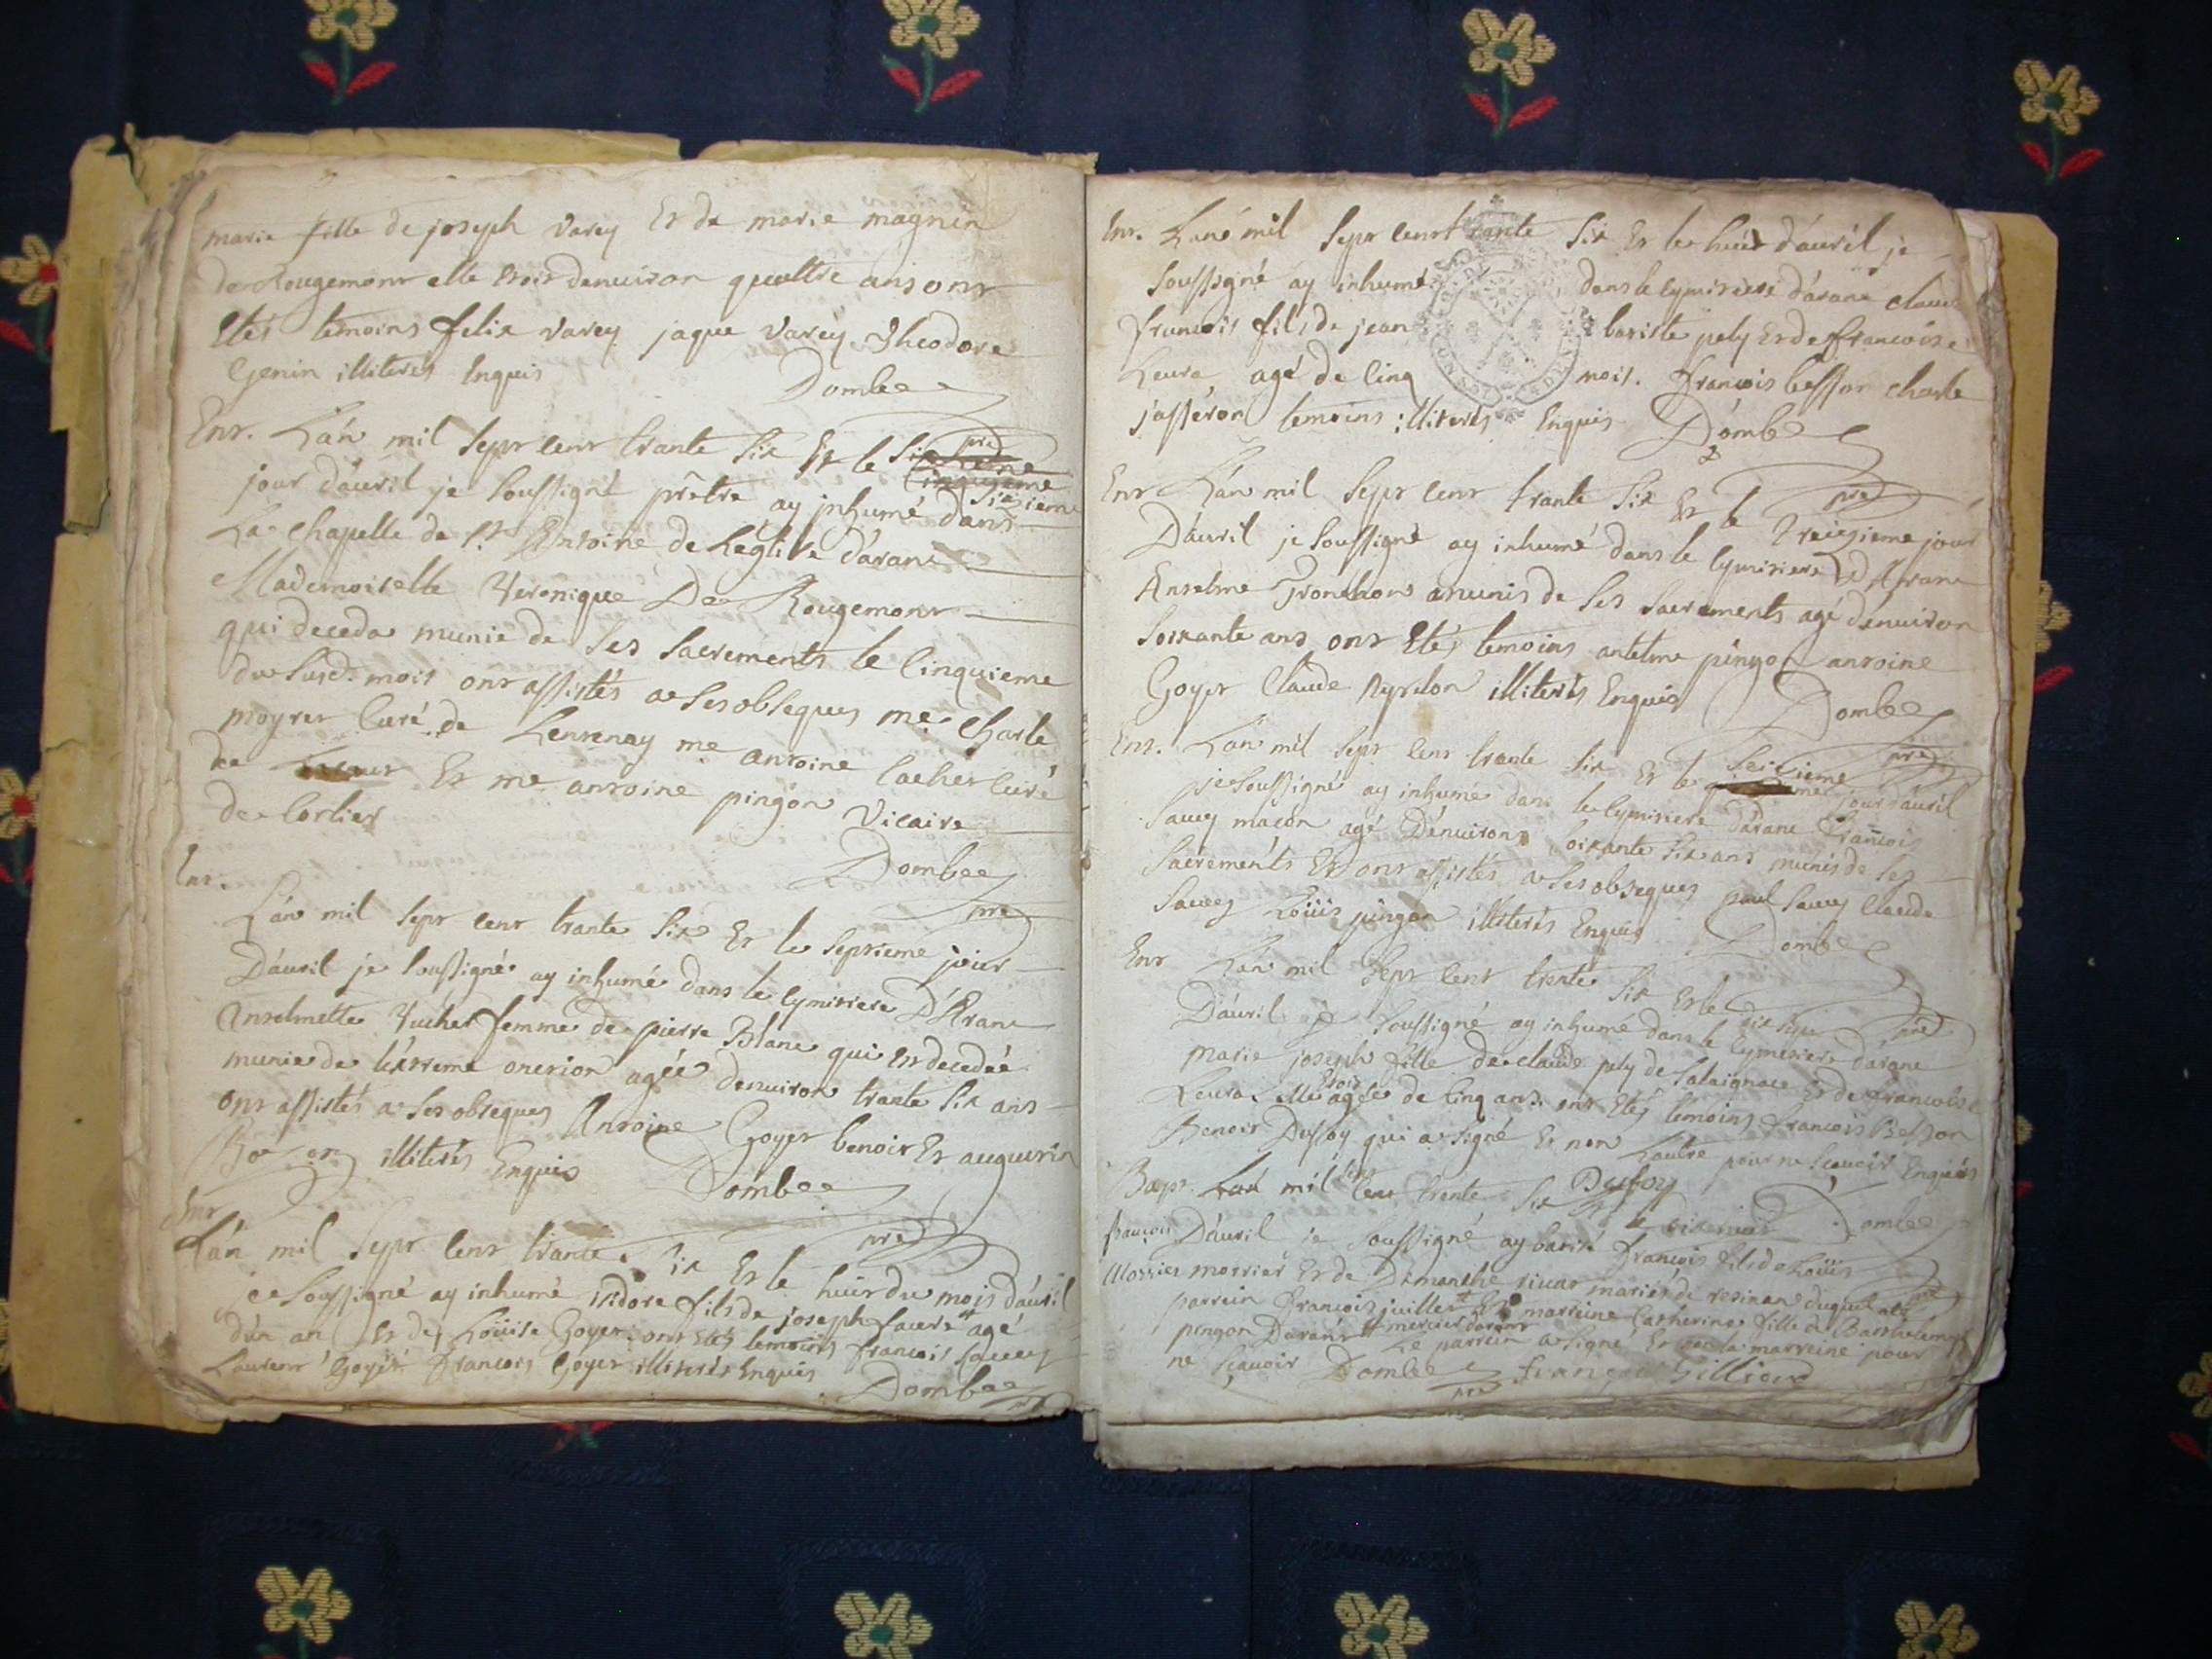 marie fille de joseph Varey Et de marie magnin
de Rougemont elle etoit denuiron quattre ans ont
Etés temoins felix Varey jaque Varey Theodore
Genin illiterés Enquis Dombe
pre
Ent. L'án mil sept cent trante six Et le sixieme
cinquieme sixieme
jour d'auril je soussigné prêtre ay jnhumé dans
La chapelle de st Antoine de Leglise d'aranc
Mademoiselle Veronique De Rougemont
qui deceda munie de ses sacrements le cinquieme
du susd. mois ont assistés a ses obseques me charle
moyret curé de Lentenay me antoine cachet curé
de Et me antoine pingon Vicaire
de Corlier
Dombe
pre
Ent.
L'án mil sept cent trante six Et le septieme jour
D'auril je soussigné ay inhumé dans le cymitiere D'Aranc
Anselmette Vuchet femme de pierre Blanc qui Est decedeé
munie de l'extreme onction agée denuiron trante six ans
ont assistés a ses obseques Antoine Goyet benoit Et augustin
illiterés Enquis Dombe
pre
Ent
L'án mil sept cent trante six Et le huit du mois d'auril
je soussigné ay inhumé isidore fils de joseph sauey agé
d'un an Et de Loüise Goyet ont Etés temoins francois sauey
Laurent Goyet francois Goyet illiterés Enquis
Dombe
Ent. L'áné mil sept cent trante six Et le huit d'auril je
soussigné ay inhumé dans le cymitiere d'aranc claude
francois fils de jean batiste pely Et de francoise
Leura agé de cinq mois. francois besson charle
jasseron temoins illiterés Enquis Dombe
pre
Ent L'án mil sept cent trante six Et le treizieme jour
D'auril je soussigné ay inhumé dans le cymitiere d'Aranc
Anselme Tronchon munis de ses sacrements agé d'enuiron
soixante ans ont Etés temoins antelme pingon antoine
Goyet Claude illiterés Enquis
Dombe
pre
Ent. L'án mil sept cent trante six Et le seizieme jour d'auril
je soussigné ay inhumé dans le cymitiere d'aranc francois
sauey maçon agé D'enuiron soixante six ans munis de ses
sacrements Et ont assistés a ses obseques paul sauey claude
sauey Loüis pingon illiterés Enquis
Dombe
pre
Ent L'án mil sept cent trente six Et le dix sept
D'auril je soussigné ay inhumé dans le cymetiere d'arane
marie joseph fille de claude pely de Et de francoise
Leura elle etoit agée de cinq ans. ont Etés temoins francois Besson
Benoit Dufoy qui a signé Et non L'autre pour ne scauoir Enquis
Dufoy Dombe
pre
Bapt. L'án mil sept cent trente six Et le
francois D'auril je soussigné ay batisé francois fils de Loüis
Mossier mossier Et de Dimanche mariés de
parrein francois juillet Et marreine Catherine fille de Barthelemy
pingon D'aranc Le parrein a signé Et non la marreine pour
ne scauoir Dombe
pre françois Gilliard